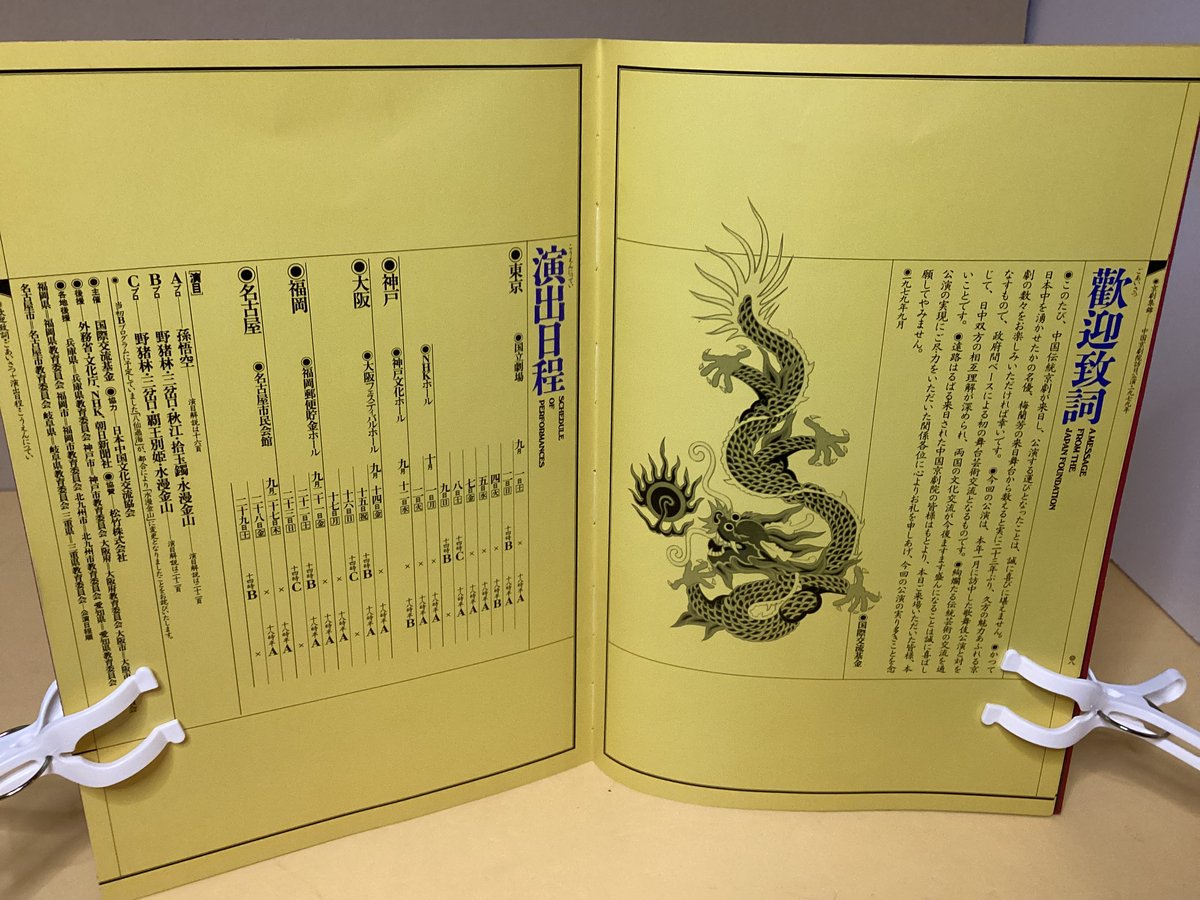 ●京劇集錦——中国京劇院訪日公演・一九七九年
ごあいさつ
歡迎致詞
A MESSAGE
FROM THE
JAPAN FOUNDATION
●このたび、中国伝統京劇が来日し、公演する運びとなったことは、誠に喜びに堪えません。●かつて
日本中を湧かせたかの名優、梅蘭芳の来日舞台から数えると実に二十三年ぶり、久方の魅力あふれる京
劇の数々をお楽しみいただければ幸いです。●今回の公演は、本年一月に訪中した歌舞伎公演と対を
なすもので、政府間ベースによる初の舞台芸術交流となるものです。●絢爛たる伝統芸術の交流を通
じて、日中双方の相互理解が深められ、両国の文化交流が今後ますます盛んになることは誠に喜ばし
いことです。●遠路はるばる来日された中国京劇院の皆様はもとより、本日ご来場いただいた皆様、本
公演の実現にご尽力をいただいた関係各位に心よりお礼を申しあげ、今回の公演の実り多きことを念
願してやみません。
●一九七九年九月
●国際交流基金
●八
こうえんにってい
演出日程
SCHEDULE
OF
PERFORMANCES
●東京
●国立劇場
九月
一日土
十八時半A
二日日
十四時B
十八時半A
四日火
×
十八時半B
五日水
×
十八時半A
七日金
×
十八時半A
八日土
十四時C
十八時半A
九日日
十四時B
×
●NHKホール
十月
●神戸
●神戸文化ホール
九月
十二日水
×
十八時半B
●大阪
●大阪フェスティバルホール
九月
十四日金
×
十八時半A
十五日祝
十四時B
十八時半A
十六日日
十四時C
×
十七日月
×
十八時半A
●福岡
●福岡郵便貯金ホール
九月
二十一日金
×
十八時半A
二十二日土
十四時B
十八時半A
二十三日日
十四時C
×
●名古屋
●名古屋市民会館
九月
二十七日木
×
十八時半A
二十八日金
×
十八時半A
二十九日土
十四時B
×
[演目]
Aプロ 孫悟空 演目解説は十六頁
Bプロ 野猪林・三岔口・秋江・拾玉鐲・水漫金山 演目解説は二十二頁
Cプロ 野猪林・三岔口・覇王別姫・水漫金山
●当初Bプログラムに予定していました「八仙過海」が、都合により「水漫金山」に変更となりましたことをお詫びいたします。
●主催 国際交流基金 ●協力 日本中国文化交流協会
●後援 外務省・文化庁、NHK、朝日新聞社 ●協賛 松竹株式会社
●各地後援 兵庫県=兵庫県教育委員会 神戸市=神戸市教育委員会 大阪府=大阪府教育委員会 大阪市=大阪市
福岡県=福岡県教育委員会 福岡市=福岡市教育委員会 北九州市=北九州市教育委員会 愛知県=愛知県教育委員会
名古屋市=名古屋市教育委員会 岐阜県=岐阜県教育委員会 三重県=三重県教育委員会